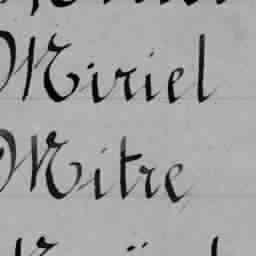 Miriel
Mitre